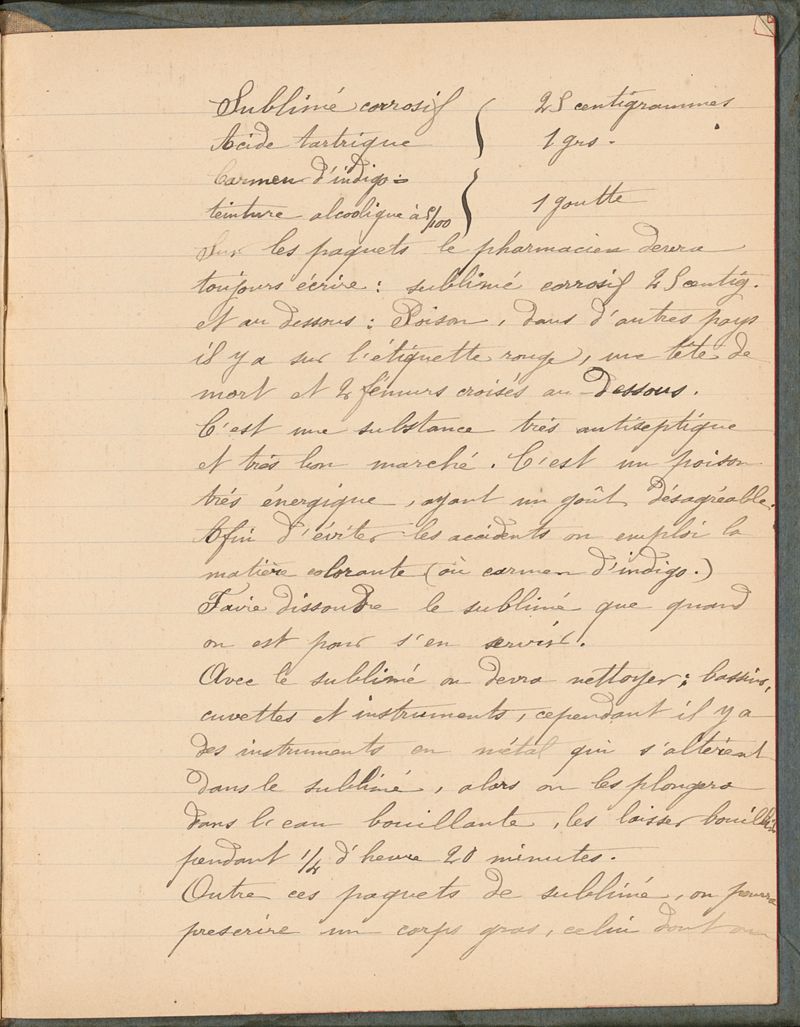 Sublimé corrosif } 25 centigrammes
Acide tartrique } 1 grs.
Carmen d'indigo =
teinture alcoolique à 5/100 } 1 goutte
Sur les paquets le pharmacien devra
toujours écrire : sublimé corrosif 25 centig.
et au dessous : Poison, dans d'autres pays
il y a sur l'étiquette rouge, une tête de
mort et 2 fémurs croisés au-Dessous.
C'est une substance très antiseptique
et très bon marché. C'est un poison
très énergique, ayant un goût désagréable.
Afin d'éviter les accidents on emploi la
matière colorante (où carmen d'indigo.)
Faire dissoudre le sublimé que quand
on est pour s'en servir.
Avec le sublimé on devra nettoyer : bassins,
cuvettes et instruments, cependant il y a
des instruments en métal qui s'altèrent
dans le sublimé, alors on les plongera
dans l'eau bouillante, les laisser bouillir
pendant 1/4 d'heure 20 minutes.
Outre ces paquets de sublimé, on pourra
prescrire un corps gras, celui dont on